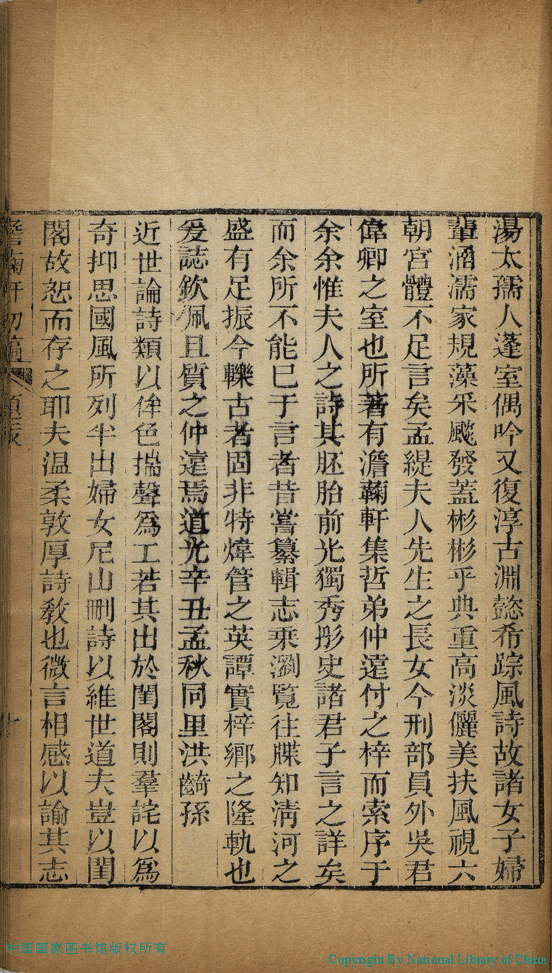 湯太孺人蓬室偶吟又復淳古淵懿希踪風詩故諸女子婦
輩涵濡家規藻采飈發蓋彬彬乎典重高淡儷美扶風視六
朝宮體不足言矣孟緹夫人先生之長女今刑部員外吳君
偉卿之室也所著有澹蘜軒集哲弟仲遠付之梓而索序于
余余惟夫人之詩其胚胎前光獨秀彤史諸君子言之詳矣
而余所不能已于言者昔嘗纂輯志乘瀏覽往牒知淸河之
盛有足振今轢古者固非特煒管之英譚實梓鄕之隆軌也
爰誌欽佩且質之仲遠焉道光辛丑孟秋同里洪齮孫
近世論詩類以侔色揣聲爲工若其出於閨閣則羣詫以爲
奇抑思國風所列半出婦女尼山刪詩以維世道夫豈以閨
閣故恕而存之耶夫温柔敦厚詩敎也微言相感以諭其志
澹蘜軒初稿
題辭
十
中国国家图书馆版权所有
Copyright By National Library of China